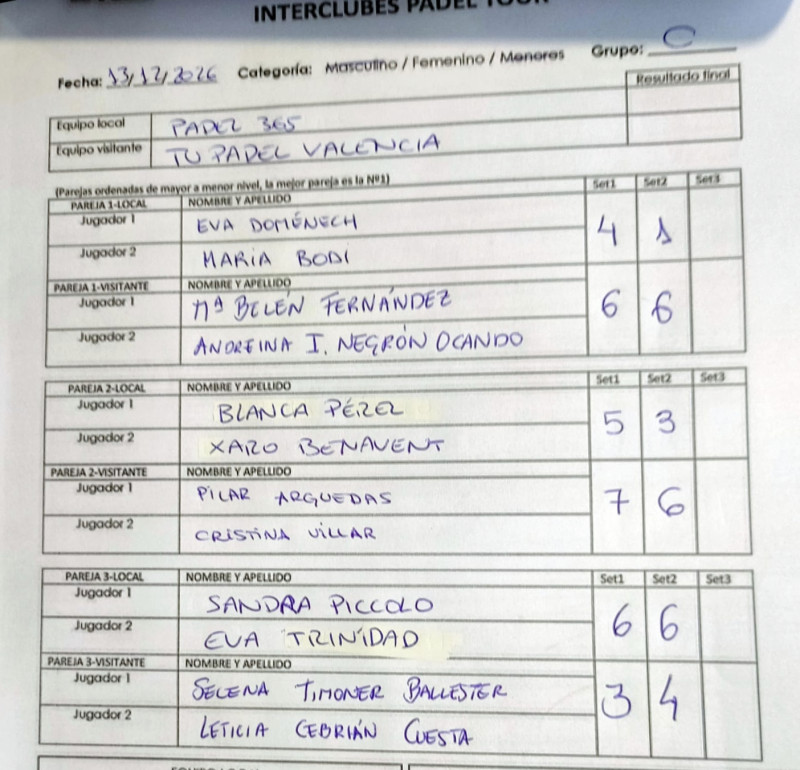 INTERCLUBES PADEL TOUR
Fecha: 13/12/2026 Categoría: Masculino / Femenino / Menores Grupo: C
Resultado final
Equipo local PADEL 365
Equipo visitante TU PADEL VALENCIA
(Parejas ordenadas de mayor a menor nivel, la mejor pareja es la Nº1) Set1 Set2 Set3
PAREJA 1-LOCAL NOMBRE Y APELLIDO
Jugador 1 EVA DOMÉNECH 4 1
Jugador 2 MARIA BODI
PAREJA 1-VISITANTE NOMBRE Y APELLIDO
Jugador 1 Mª BELÉN FERNÁNDEZ 6 6
Jugador 2 ANDREINA I. NEGRÓN OCANDO
PAREJA 2-LOCAL NOMBRE Y APELLIDO Set1 Set2 Set3
Jugador 1 BLANCA PÉREZ 5 3
Jugador 2 XARO BENAVENT
PAREJA 2-VISITANTE NOMBRE Y APELLIDO
Jugador 1 PILAR ARGUEDAS 7 6
Jugador 2 CRISTINA VILLAR
PAREJA 3-LOCAL NOMBRE Y APELLIDO Set1 Set2 Set3
Jugador 1 SANDRA PICCOLO 6 6
Jugador 2 EVA TRINIDAD
PAREJA 3-VISITANTE NOMBRE Y APELLIDO
Jugador 1 SELENA TIMONER BALLESTER 3 4
Jugador 2 LETICIA CEBRIÁN CUESTA